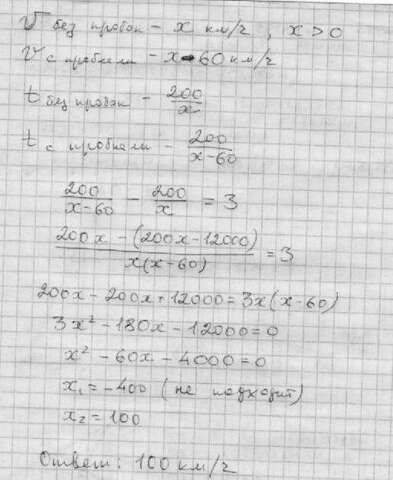 V без пробок - x км/ч, x > 0
V с пробками - x - 60 км/ч
t без пробок - 200/x
t с пробками - 200/(x-60)
200/(x-60) - 200/x = 3
(200x - (200x - 12000))/(x(x-60)) = 3
200x - 200x + 12000 = 3x(x-60)
3x² - 180x - 12000 = 0
x² - 60x - 4000 = 0
x₁ = -400 (не подходит)
x₂ = 100
Ответ: 100 км/ч